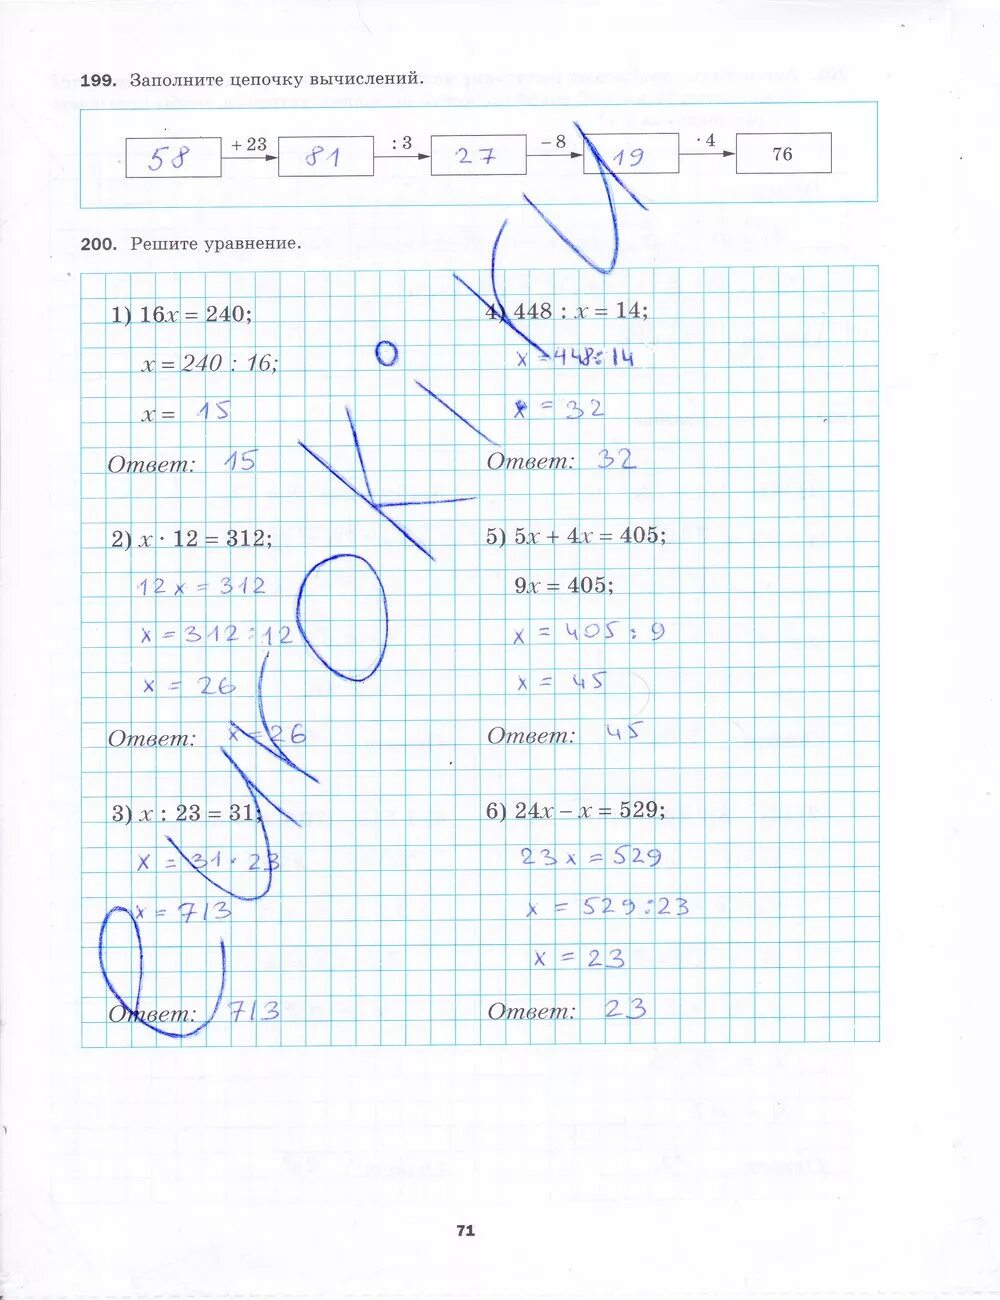 199. Заполните цепочку вычислений.
58 +23 81 :3 27 –8 19 ·4 76
200. Решите уравнение.
1) 16x = 240;
x = 240 : 16;
x = 15
Ответ: 15
2) x · 12 = 312;
12x = 312
x = 312 : 12
x = 26
Ответ: x = 26
3) x : 23 = 31;
x = 31 · 23
x = 713
Ответ: 713
4) 448 : x = 14;
x = 448 : 14
x = 32
Ответ: 32
5) 5x + 4x = 405;
9x = 405;
x = 405 : 9
x = 45
Ответ: 45
6) 24x – x = 529;
23x = 529
x = 529 : 23
x = 23
Ответ: 23
71